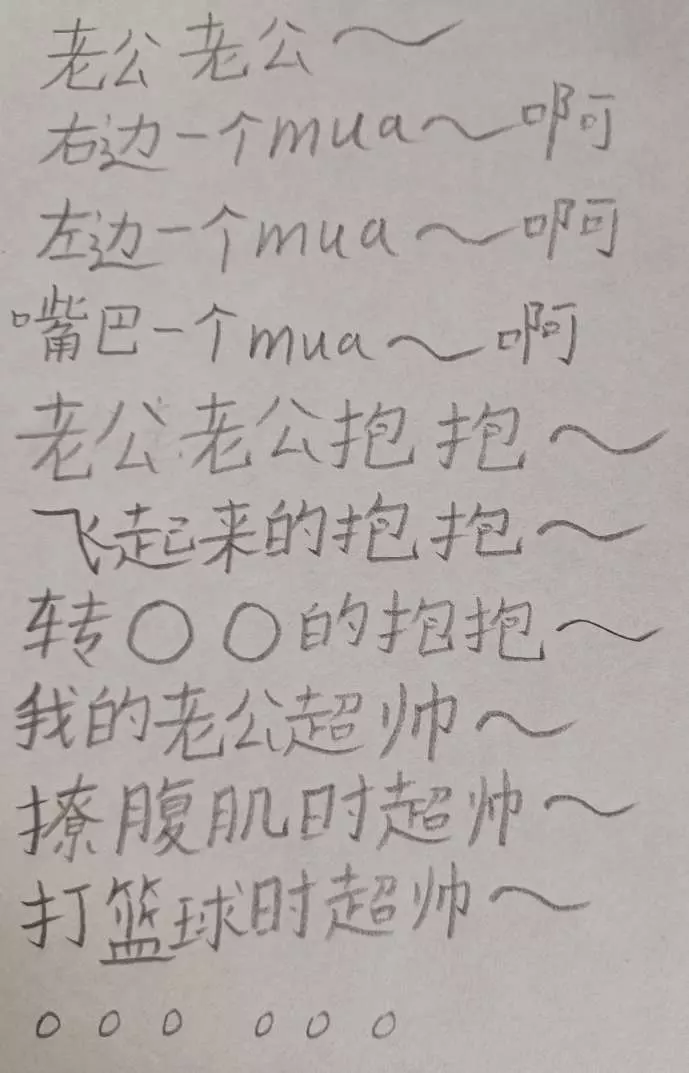 老公老公～
右边一个mua～啊
左边一个mua～啊
嘴巴一个mua～啊
老公老公抱抱～
飞起来的抱抱～
转〇〇的抱抱～
我的老公超帅～
撩腹肌时超帅～
打篮球时超帅～
。。。 。。。